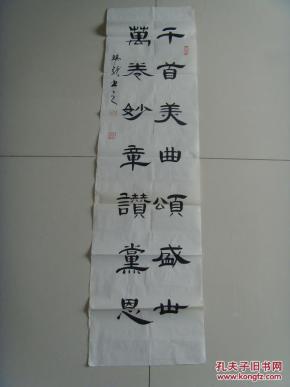 千首美曲頌盛世
萬卷妙章讃黨恩
孔夫子旧书网